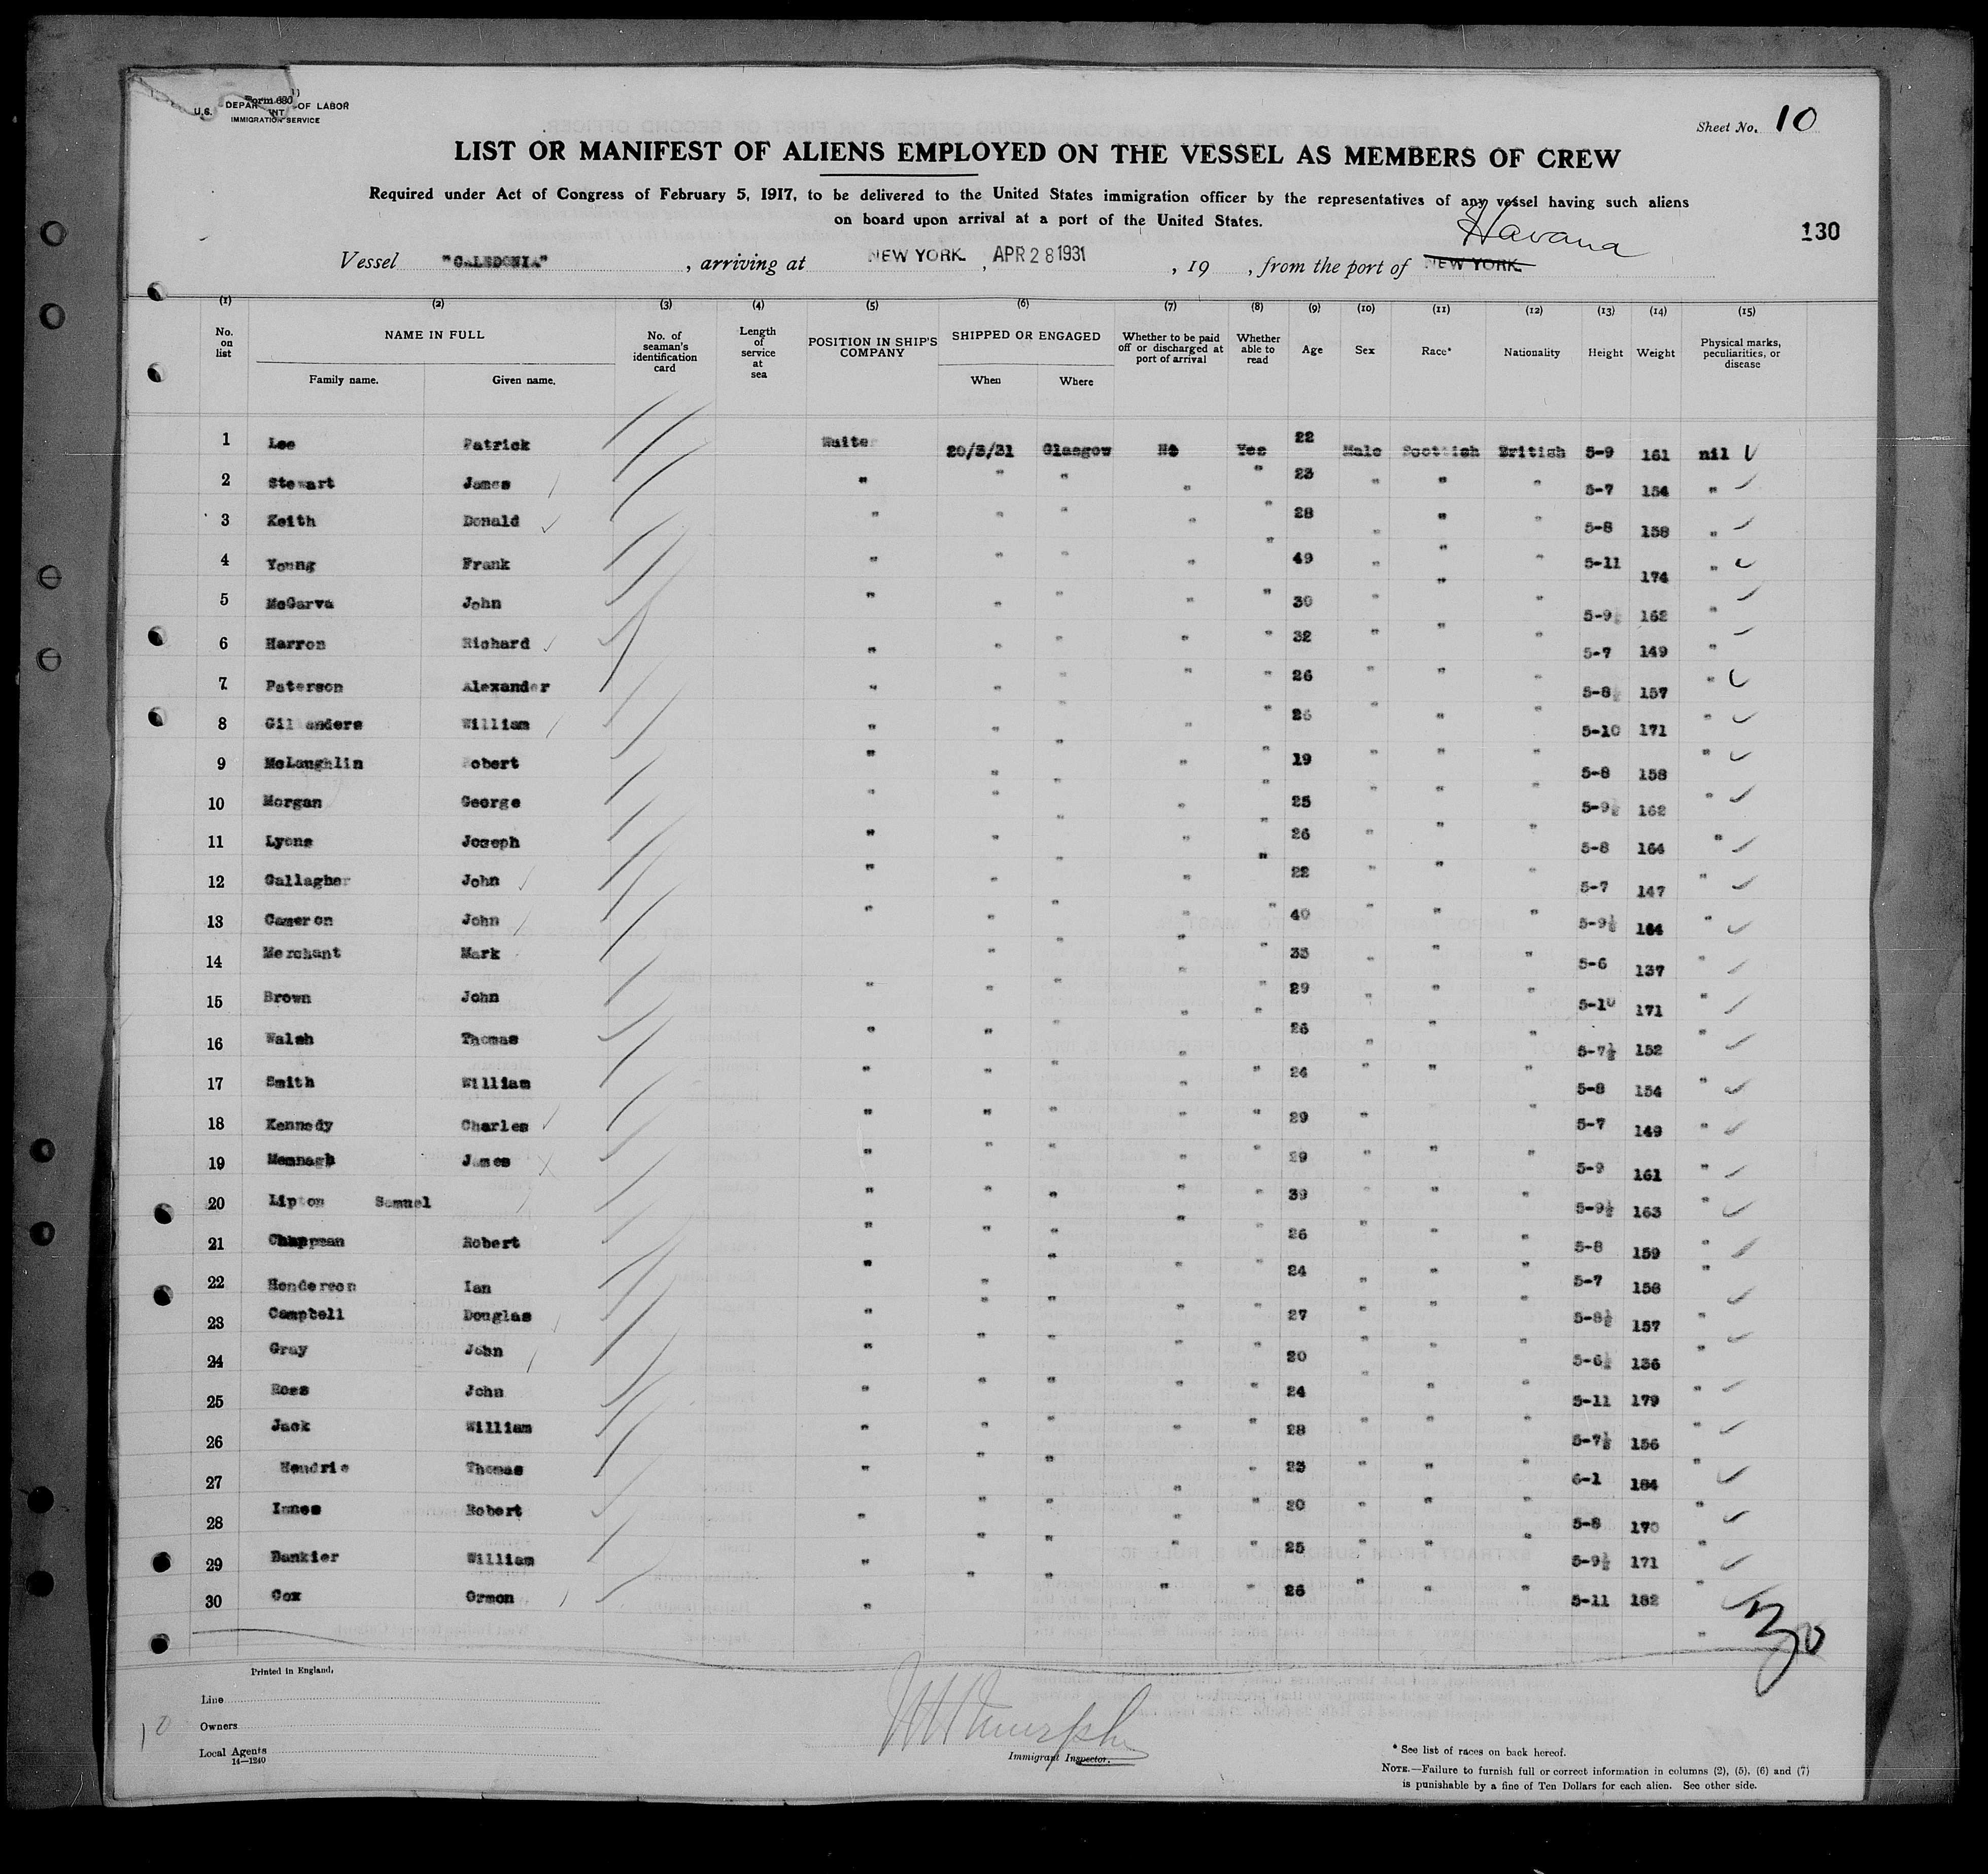 Form 680
U.S. DEPARTMENT OF LABOR
IMMIGRATION SERVICE
Sheet No. 10
LIST OR MANIFEST OF ALIENS EMPLOYED ON THE VESSEL AS MEMBERS OF CREW
Required under Act of Congress of February 5, 1917, to be delivered to the United States immigration officer by the representatives of any vessel having such aliens
on board upon arrival at a port of the United States.
Havana
130
Vessel "CALEDONIA", arriving at NEW YORK, APR 28 1931, 19 , from the port of NEW YORK
(1) (2) (3) (4) (5) (6) (7) (8) (9) (10) (11) (12) (13) (14) (15)
No. on list NAME IN FULL No. of seaman's identification card Length of service at sea POSITION IN SHIP'S COMPANY SHIPPED OR ENGAGED Whether to be paid off or discharged at port of arrival Whether able to read Age Sex Race* Nationality Height Weight Physical marks, peculiarities, or disease
Family name. Given name. When Where
1 Lee Patrick Waiter 20/3/31 Glasgow No Yes 22 Male Scottish British 5-9 161 nil
2 Stewart James " " " " " 23 " " " 5-7 154 "
3 Keith Donald " " " " " 28 " " " 5-8 158 "
4 Young Frank " " " " " 49 " " " 5-11 174 "
5 McGarva John " " " " " 30 " " " 5-9½ 162 "
6 Harron Richard " " " " " 32 " " " 5-7 149 "
7 Paterson Alexander " " " " " 26 " " " 5-8½ 157 "
8 Gillanders William " " " " " 26 " " " 5-10 171 "
9 McLaughlin Robert " " " " " 19 " " " 5-8 158 "
10 Morgan George " " " " " 25 " " " 5-9½ 162 "
11 Lyons Joseph " " " " " 26 " " " 5-8 164 "
12 Gallagher John " " " " " 22 " " " 5-7 147 "
13 Cameron John " " " " " 40 " " " 5-9½ 164 "
14 Merchant Mark " " " " 35 " " " 5-6 137 "
15 Brown John " " " " " 29 " " " 5-10 171 "
16 Walsh Thomas " " " " " 26 " " " 5-7½ 152 "
17 Smith William " " " " " 24 " " " 5-8 154 "
18 Kennedy Charles " " " " " 29 " " " 5-7 149 "
19 Mennagh James " " " " " 29 " " " 5-9 161 "
20 Lipton Samuel " " " " " 39 " " " 5-9½ 163 "
21 Chapman Robert " " " " " 26 " " " 5-8 159 "
22 Henderson Ian " " " " " 24 " " " 5-7 158 "
23 Campbell Douglas " " " " " 27 " " " 5-8½ 157 "
24 Gray John " " " " " 20 " " " 5-6½ 136 "
25 Ross John " " " " " 24 " " " 5-11 179 "
26 Jack William " " " " " 28 " " " 5-7½ 156 "
27 Hendrie Thomas " " " " 23 " " " 6-1 184 "
28 Innes Robert " " " " " 20 " " " 5-8 170 "
29 Bankier William " " " " 25 " " " 5-9½ 171 "
30 Cox Ormon " " " " " 26 " " " 5-11 182 "
30
Printed in England.
Line
Owners
10
Local Agents
14—1240
Immigrant Inspector.
* See list of races on back hereof.
NOTE.—Failure to furnish full or correct information in columns (2), (5), (6) and (7)
is punishable by a fine of Ten Dollars for each alien. See other side.